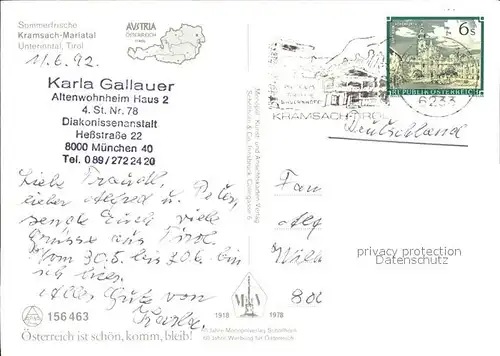 Sommerfrische
Kramsach-Mariatal
Unterinntal, Tirol
AUSTRIA
ÖSTERREICH
11.6.92
Karla Gallauer
Altenwohnheim Haus 2
4. St. Nr. 78
Diakonissenanstalt
Heßstraße 22
8000 München 40
Tel. 089/272 24 20
6 S
REPUBLIK ÖSTERREICH
6233
KRAMSACH-TIROL
Deutschland
Liebe Traudl,
lieber Alfred u. Peter,
sende Euch viele
Grüsse aus Tirol.
Vom 30.5. bis 20.6. bin
ich hier.
Alles Gute von
Karla.
Fam
privacy protection
Datenschutz
800
156 463
1918
1978
60 Jahre Monopolverlag Schöllhorn
60 Jahre Werbung für Österreich
Österreich ist schön, komm, bleib!